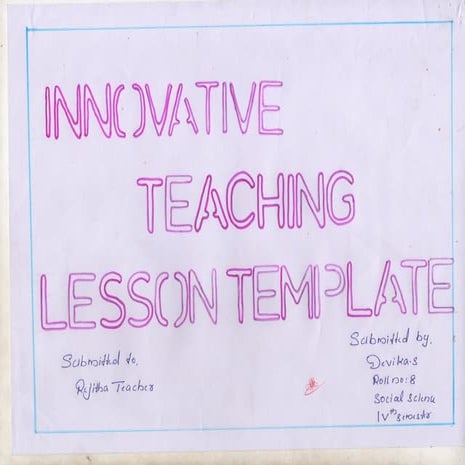 INNOVATIVE
TEACHING
LESSON TEMPLATE
Submitted to,
Rejitha Teacher
Submitted by,
Devika.S
Roll no: 8
Social Science
IVth semester